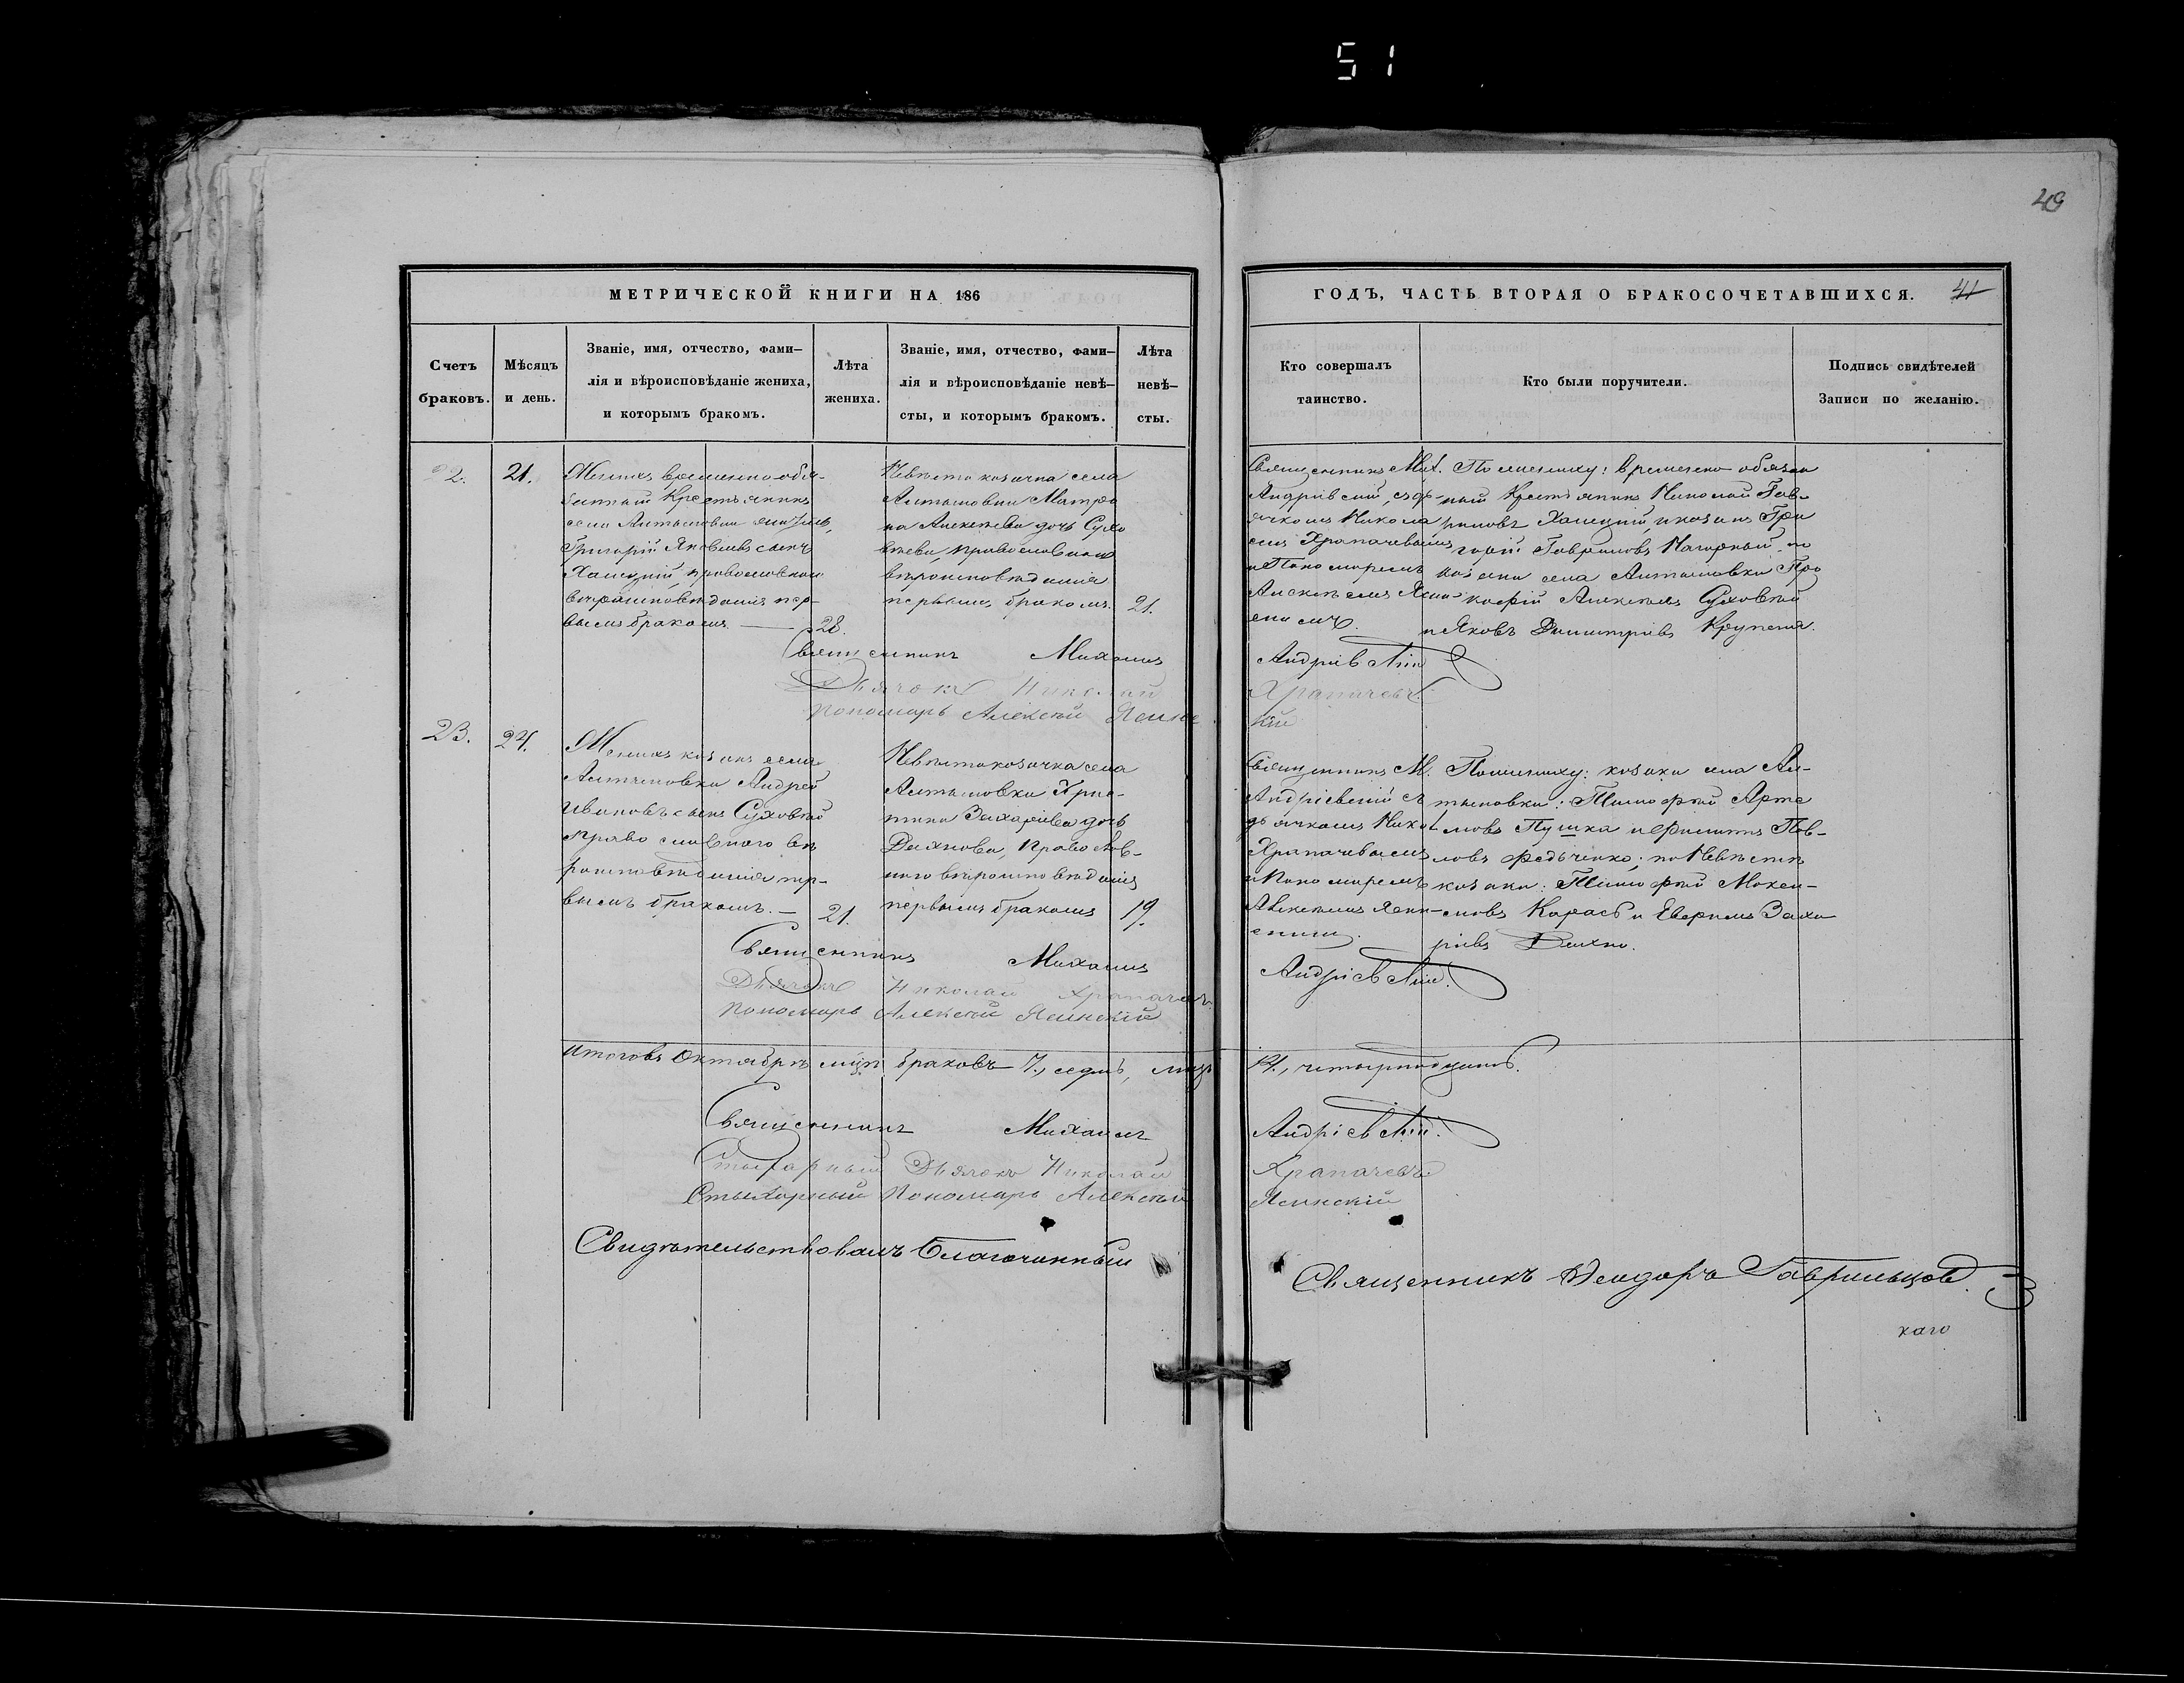 51
49
МЕТРИЧЕСКОЙ КНИГИ НА 186
Счетъ браковъ.
Мѣсяцъ и день.
Званіе, имя, отчество, фами-
лія и вѣроисповѣданіе жениха,
и которымъ бракомъ.
Лѣта
жениха.
Званіе, имя, отчество, фами-
лія и вѣроисповѣданіе невѣ-
сты, и которымъ бракомъ.
Лѣта
невѣ-
сты.
ГОДЪ, ЧАСТЬ ВТОРАЯ О БРАКОСОЧЕТАВШИХСЯ.
41
Кто совершалъ
таинство.
Кто были поручители.
Подпись свидѣтелей
Записи по желанію.
22.
21.
Женихъ временно-обя-
занный Крестьянинъ
села Антыновки
Григорій Яковлевъ сынъ
православнаго
вѣроисповѣданія пер-
вымъ бракомъ.
28.
Невѣста козачка села
Алтыновки Матро
на Алексѣева дочь Сухо
вѣева, православнаго
вѣроисповѣданія
первымъ бракомъ.
21.
Священникъ Мих.
Андріевскій, съ дь-
ячкомъ Никола
емъ Храпачевымъ
и Пономаремъ
Алексѣемъ Ясин-
скимъ.
По жениху: временно обязан
ный Крестьянинъ Николай Гав-
риловъ и козакъ Гри
горій Гавриловъ Нагорный, по
козаки села Алтыновки Про
кофій Алексѣевъ Суховѣй
и Яковъ Димитріевъ
Священникъ Михаилъ Андріевскій
Дьячокъ Николай Храпачевъ
Пономарь Алексѣй Ясинс
кій
23.
24.
Женихъ козакъ села
Алтыновки Андрей
Ивановъ сынъ Суховѣй
православнаго вѣ
роисповѣданія пер-
вымъ бракомъ.
21.
Невѣста козачка села
Алтыновки Хрис-
тина Захаріева дочь
Дахнова, православ-
наго вѣроисповѣданія
первымъ бракомъ
19.
Священникъ М.
Андріевскій съ
дьячкомъ Никол
Храпачевымъ
и Пономаремъ
Алексѣемъ Ясин-
скимъ.
По жениху: козаки села Ал-
тыновки: Тимофѣй Арте
мовъ Пушка и Филиппъ Пав-
ловъ Федьченко; по Невѣстѣ
козаки: Тимофѣй
Карась и Евфимъ Заха
ріевъ Дахно.
Священникъ Михаилъ Андріевскій.
Дьячокъ Николай Храпачевъ
Пономарь Алексѣй Ясинскій
Итого въ Октябрѣ мцѣ браковъ 7, седмь, лицъ 14, четырнадцать.
Священникъ Михаилъ Андріевскій.
Стихарный Дьячокъ Николай Храпачевъ
Стихарный Пономарь Алексѣй Ясинскій
Свидѣтельствовалъ Благочинный
Священникъ Ѳеодоръ Гаврильцов
каго